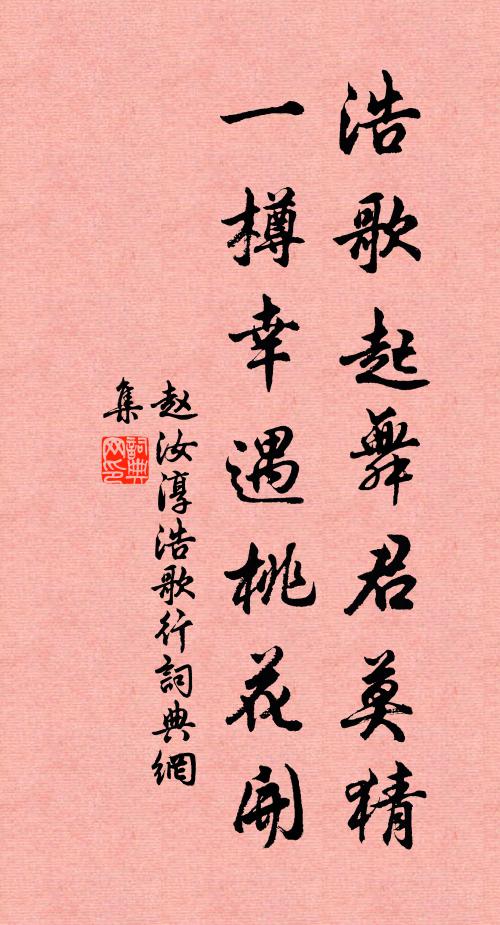 浩歌起舞君莫猜
一樽幸遇桃花開
赵汝淳浩歌行詞典網
集
詞典
网印